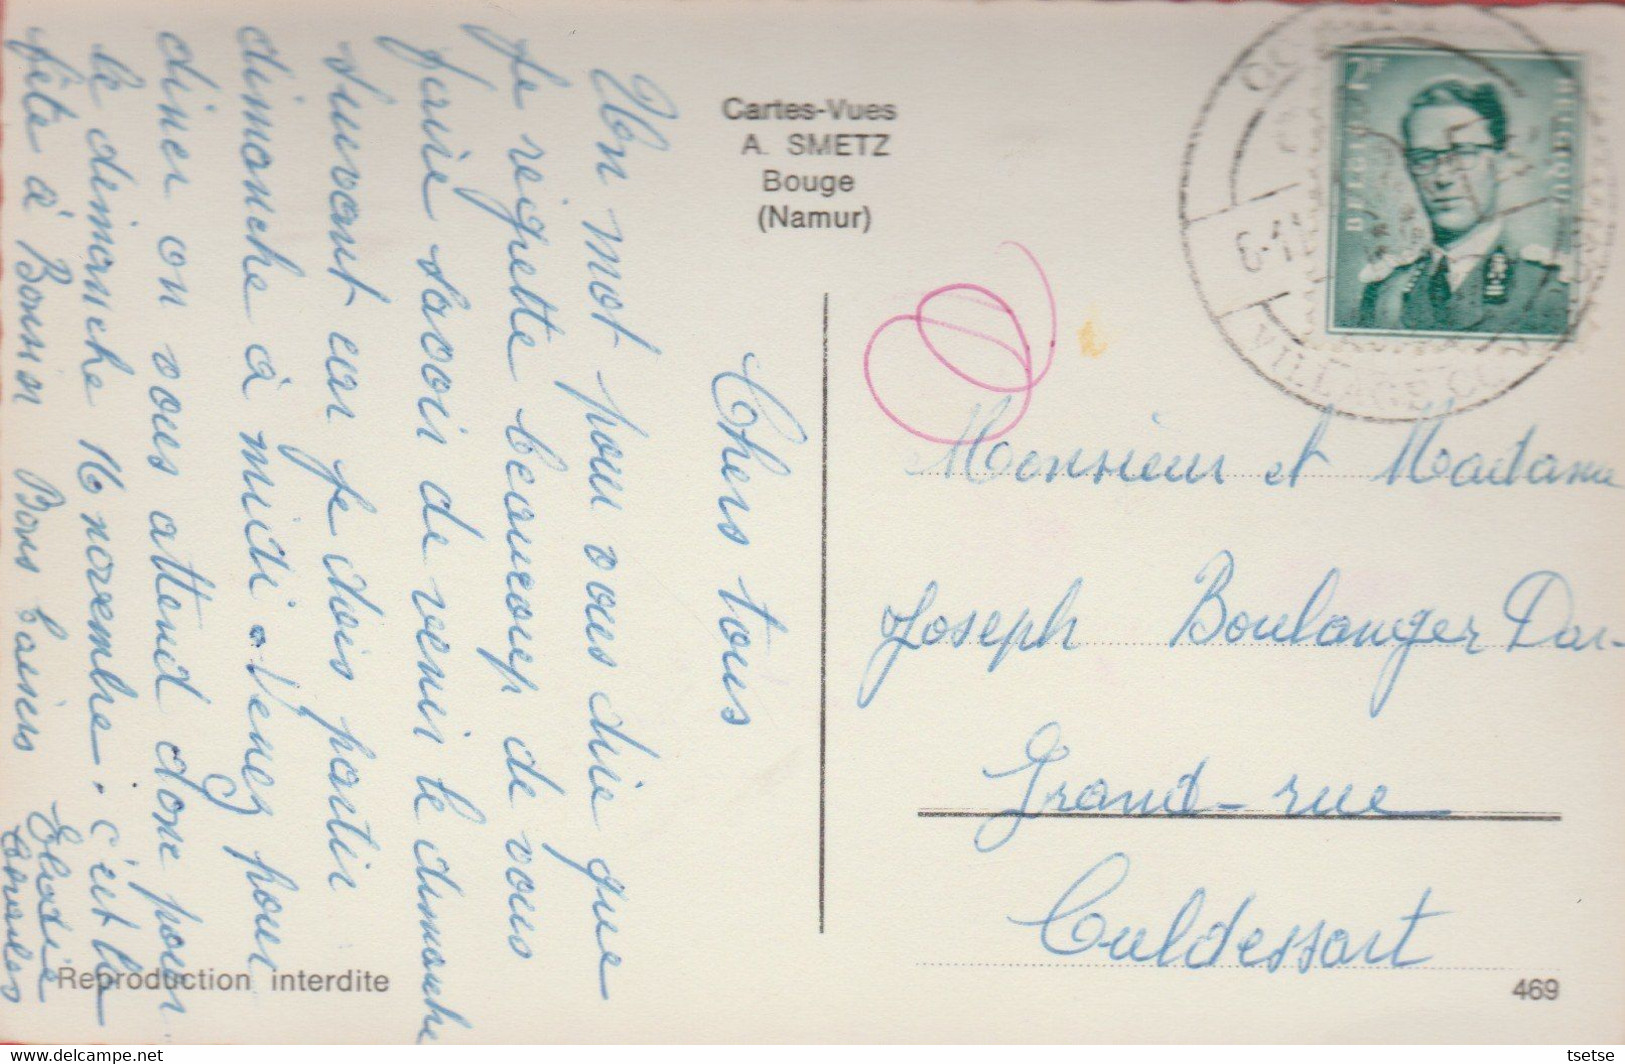 Chers tous
Un mot pour vous dire que
je regrette beaucoup de vous
faire savoir de venir le dimanche
suivant car je dois partir
dimanche à midi. Venez pour
diner on vous attend donc pour
le dimanche 16 novembre. c'est la
fête à Bonsin Bons baisers
Elodie
Charles
Cartes-Vues
A. SMETZ
Bouge
(Namur)
2F
BELGIE
BELGIQUE
VILLAGE
Monsieur et Madame
Joseph Boulanger Dar-
Grand-rue
Culdessart
Reproduction interdite
469
delcampe.net
tsetse